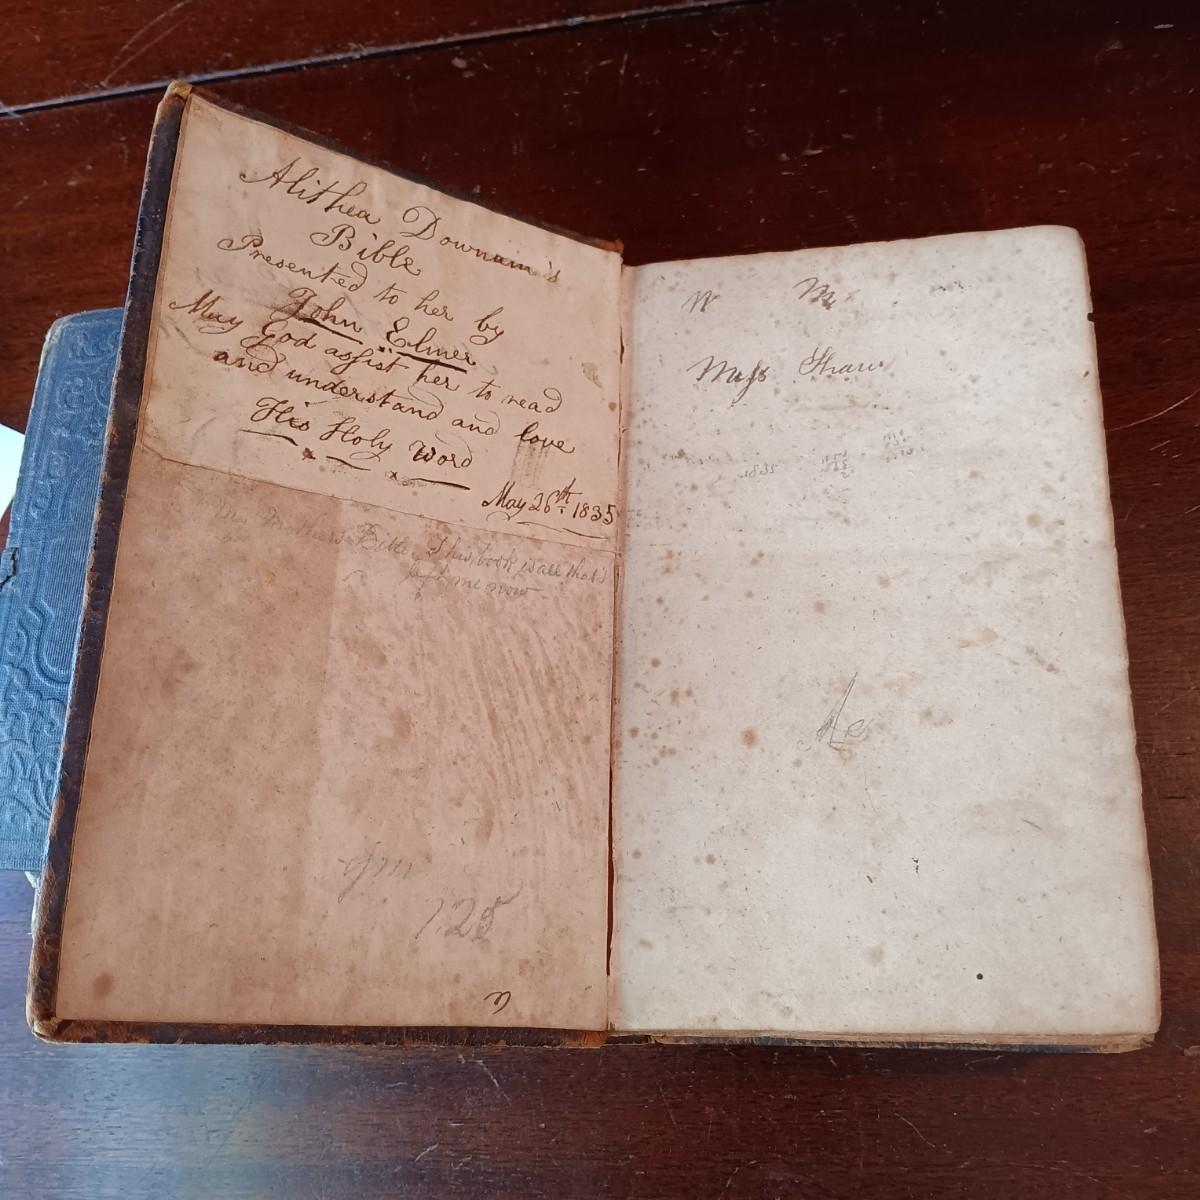 Alithea Downam's
Bible
Presented to her by
John Elmer
May God assist her to read
and understand and love
His Holy Word
May 26th 1835
My Mothers Bible. This book is all that's
left me now
125
W M
Miss Shaw
1835
Me